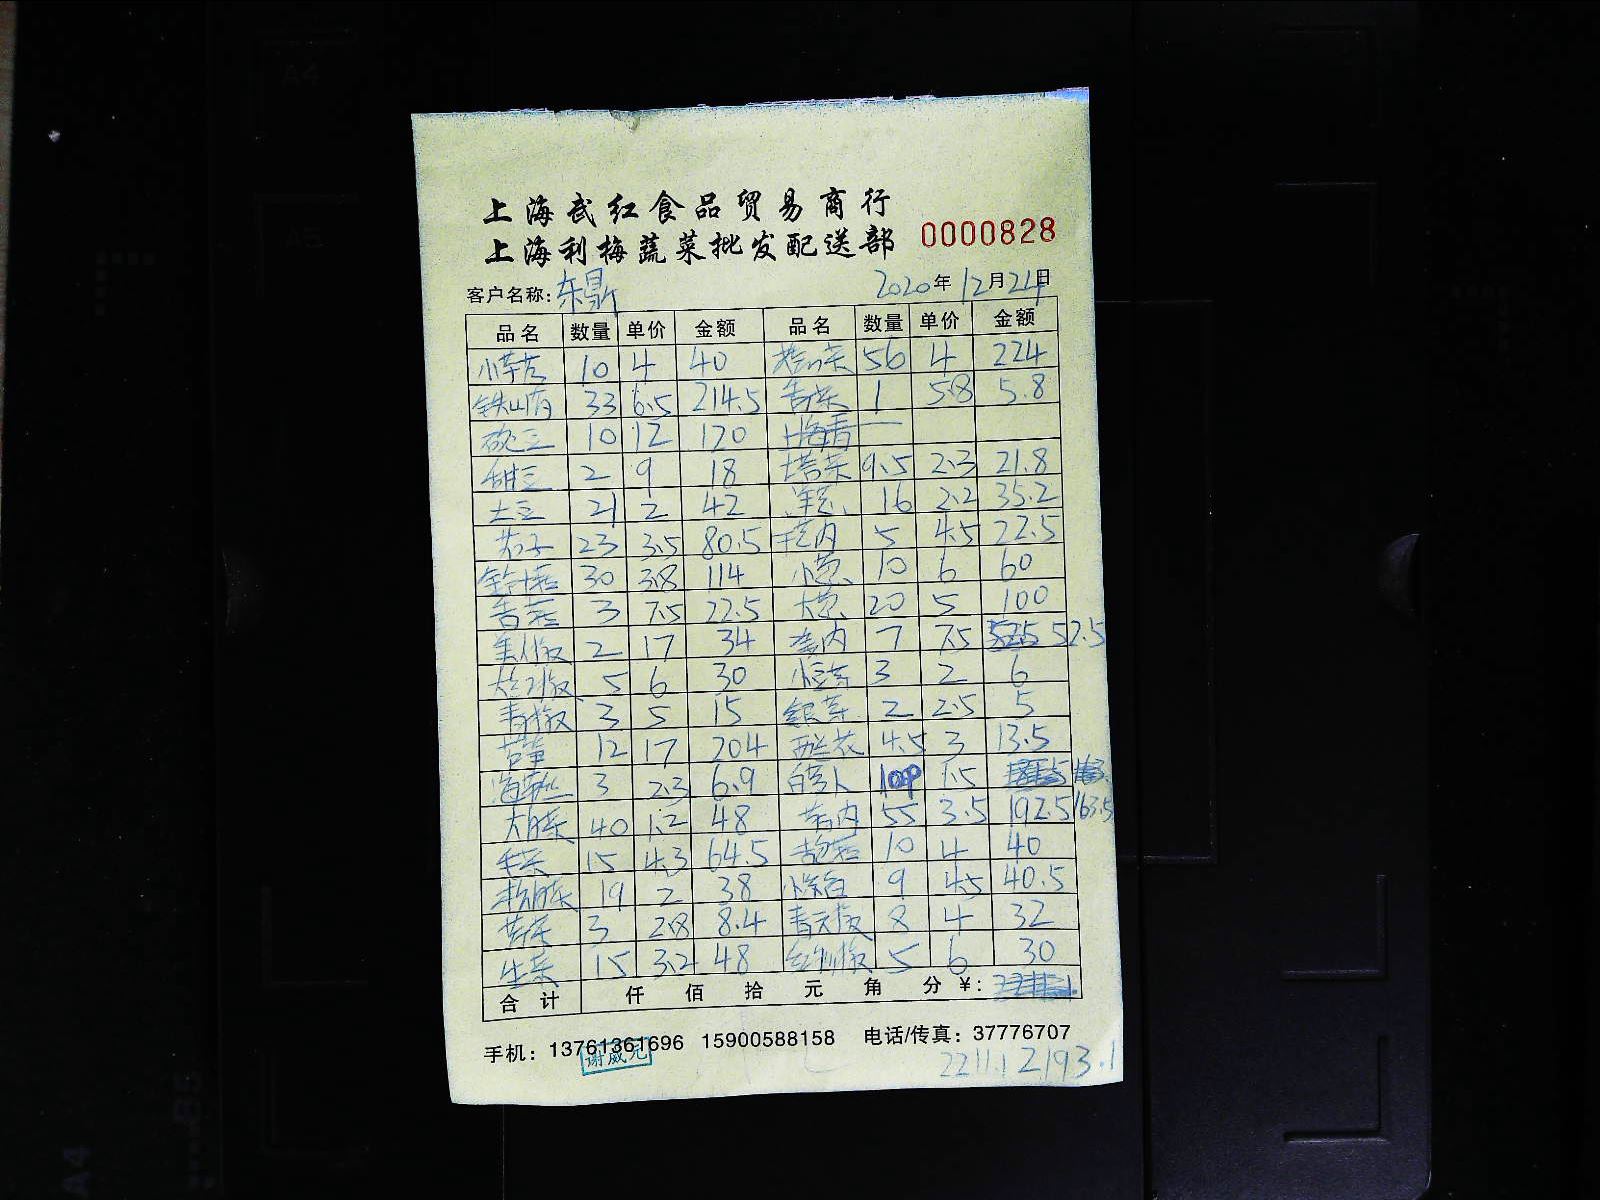 A4
A5
上海武红食品贸易商行
上海利梅蔬菜批发配送部 0000828
客户名称: 东鼎 2020年12月24日
品名 数量 单价 金额 品名 数量 单价 金额
小草芒 10 4 40 56 4 224
铁山药 33 6.5 214.5 香菜 1 5.8 5.8
豌豆 10 12 120 上海青
甜豆 2 9 18 塔菜 9.5 2.3 21.8
土豆 21 2 42 洋葱 16 2.2 35.2
茄子 23 3.5 80.5 5 4.5 22.5
30 3.8 114 小葱 10 6 60
香菇 3 7.5 22.5 大葱 20 5 100
美人椒 2 17 34 7 7.5 52.5
大红椒 5 6 30 小豆芽 3 2 6
青椒 3 5 15 银芽 2 2.5 5
苦笋 12 17 204 西兰花 4.5 3 13.5
海带丝 3 2.3 6.9 白萝卜 109 1.5
大白菜 40 1.2 48 莴肉 55 3.5 192.5 163.5
毛菜 15 4.3 64.5 10 4 40
杭白菜 19 2 38 小茭白 9 4.5 40.5
芹菜 3 2.8 8.4 青尖椒 8 4 32
生菜 15 3.2 48 红尖椒 5 6 30
合计 仟 佰 拾 元 角 分 ¥:
手机: 13761361696 15900588158 电话/传真: 37776707
谢威元
2211.1 2193.1
A4